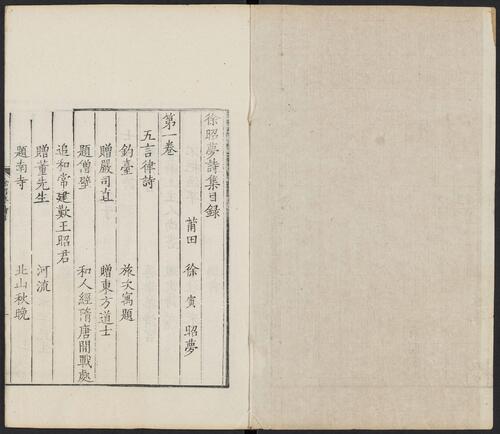 徐昭夢詩集目録
莆田 徐寅 昭夢
第一卷
五言律詩
釣臺 旅次寓題
贈嚴司直 贈東方道士
題僧壁 和人經隋唐間戰處
追和常建歎王昭君
贈董先生 河流
題南寺 北山秋晚